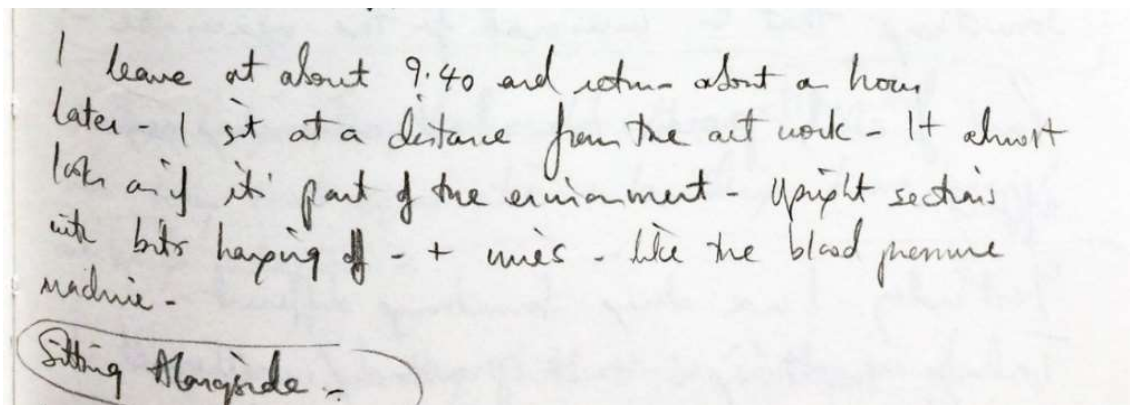 I leave at about 9.40 and return about a hour
later - I sit at a distance from the art work - It almost
looks as if it' part of the environment - Upright sections
with bits hanging off - + wires - like the blood pressure
machine -
Sitting Alongside -